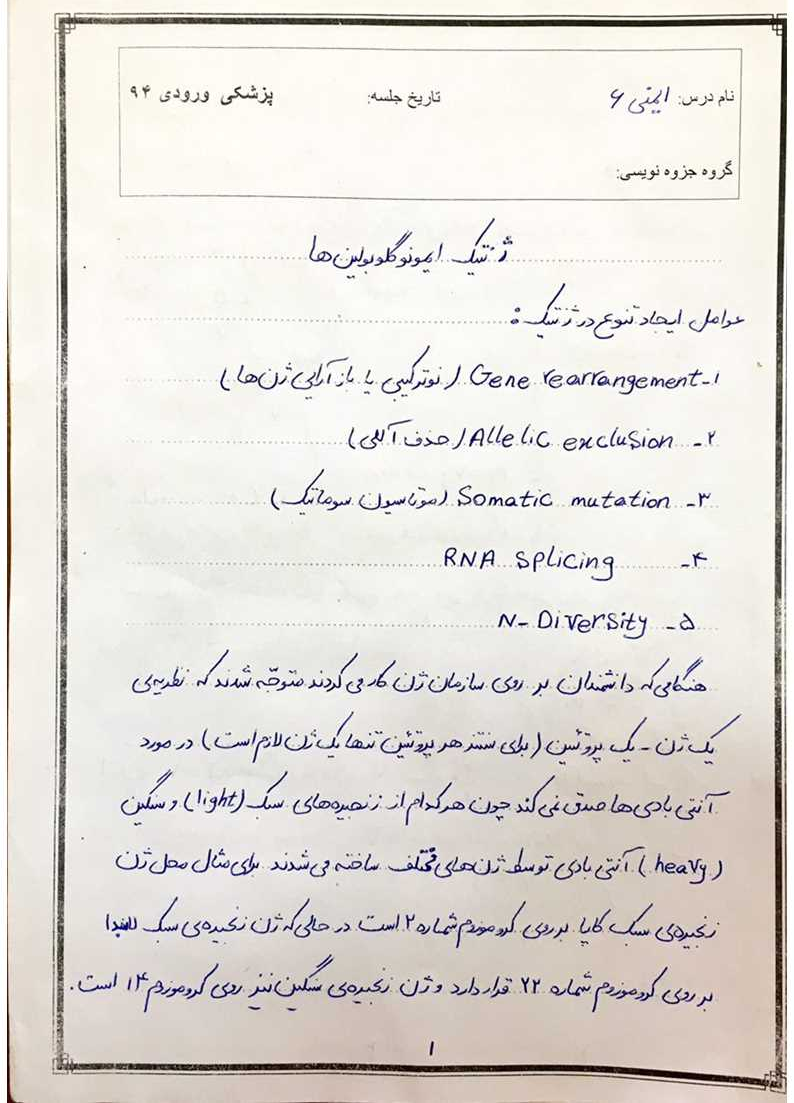 نام درس: ایمنی ۶ تاریخ جلسه: پزشکی ورودی ۹۴
گروه جزوه نویسی:
ژنتیک ایمونوگلوبولین ها
عوامل ایجاد تنوع در ژنتیک:
۱- Gene rearrangement (نوترکیبی یا بازآرایی ژن ها)
۲- Allelic exclusion (حذف آللی)
۳- Somatic mutation (موتاسیون سوماتیک)
۴- RNA splicing
۵- N- Diversity
هنگامی که دانشمندان بر روی سازمان ژن کار می کردند متوجّه شدند که نظریه ی
یک ژن - یک پروتئین (برای سنتز هر پروتئین تنها یک ژن لازم است) در مورد
آنتی بادی ها صدق نمی کند چون هرکدام از زنجیره های سبک (light) و سنگین
(heavy) آنتی بادی توسط ژن های مختلف ساخته می شدند برای مثال محل ژن
زنجیره ی سبک کاپا بر روی کروموزوم شماره ۲ است در حالی که ژن زنجیره ی سبک لامبدا
بر روی کروموزوم شماره ۲۲ قرار دارد و ژن زنجیره ی سنگین نیز روی کروموزوم ۱۴ است.
۱